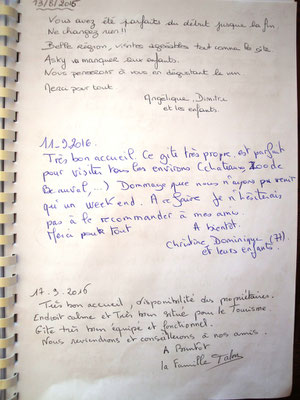 19/8/2016
Vous avez été parfaits du début jusque la fin
Ne changez rien!!
Belle région, visites agréables tout comme le site
Asky va manquer aux enfants.
Nous penserons à vous en dégustant le vin
Merci pour tout
Angélique, Dimitri
et les enfants.
11-9-2016.
Très bon accueil. Ce gîte très propre, est parfait
pour visiter tous les environs (chateau, Zoo de
Beauval,...) Dommage que nous n'ayons pu venir
qu'un week end. A refaire Je n'hésiterais
pas à le recommander à mes amis.
Merci pour tout
A bientôt
Christine, Dominique (77)
et leurs enfants.
17.9.2016
Très bon accueil, disponibilité des propriétaires.
Endroit calme et Très bien situé pour le Tourisme
Gîte très bien équipé et fonctionnel.
Nous reviendrons et conseillerons à nos amis.
A Bientôt
la Famille